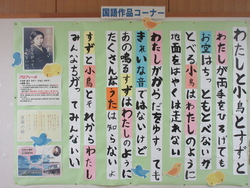 国語作品コーナー
わたしと小鳥とすずと
わたしが両手をひろげても
お空はちっともとべないが
とべる小鳥はわたしのように
地面をはやくは走れない
わたしがからだをゆすっても
きれいな音はでないけど
あの鳴るすずはわたしのように
たくさんなうたは知らないよ
すずと小鳥とそれからわたし
みんなちがってみんないい